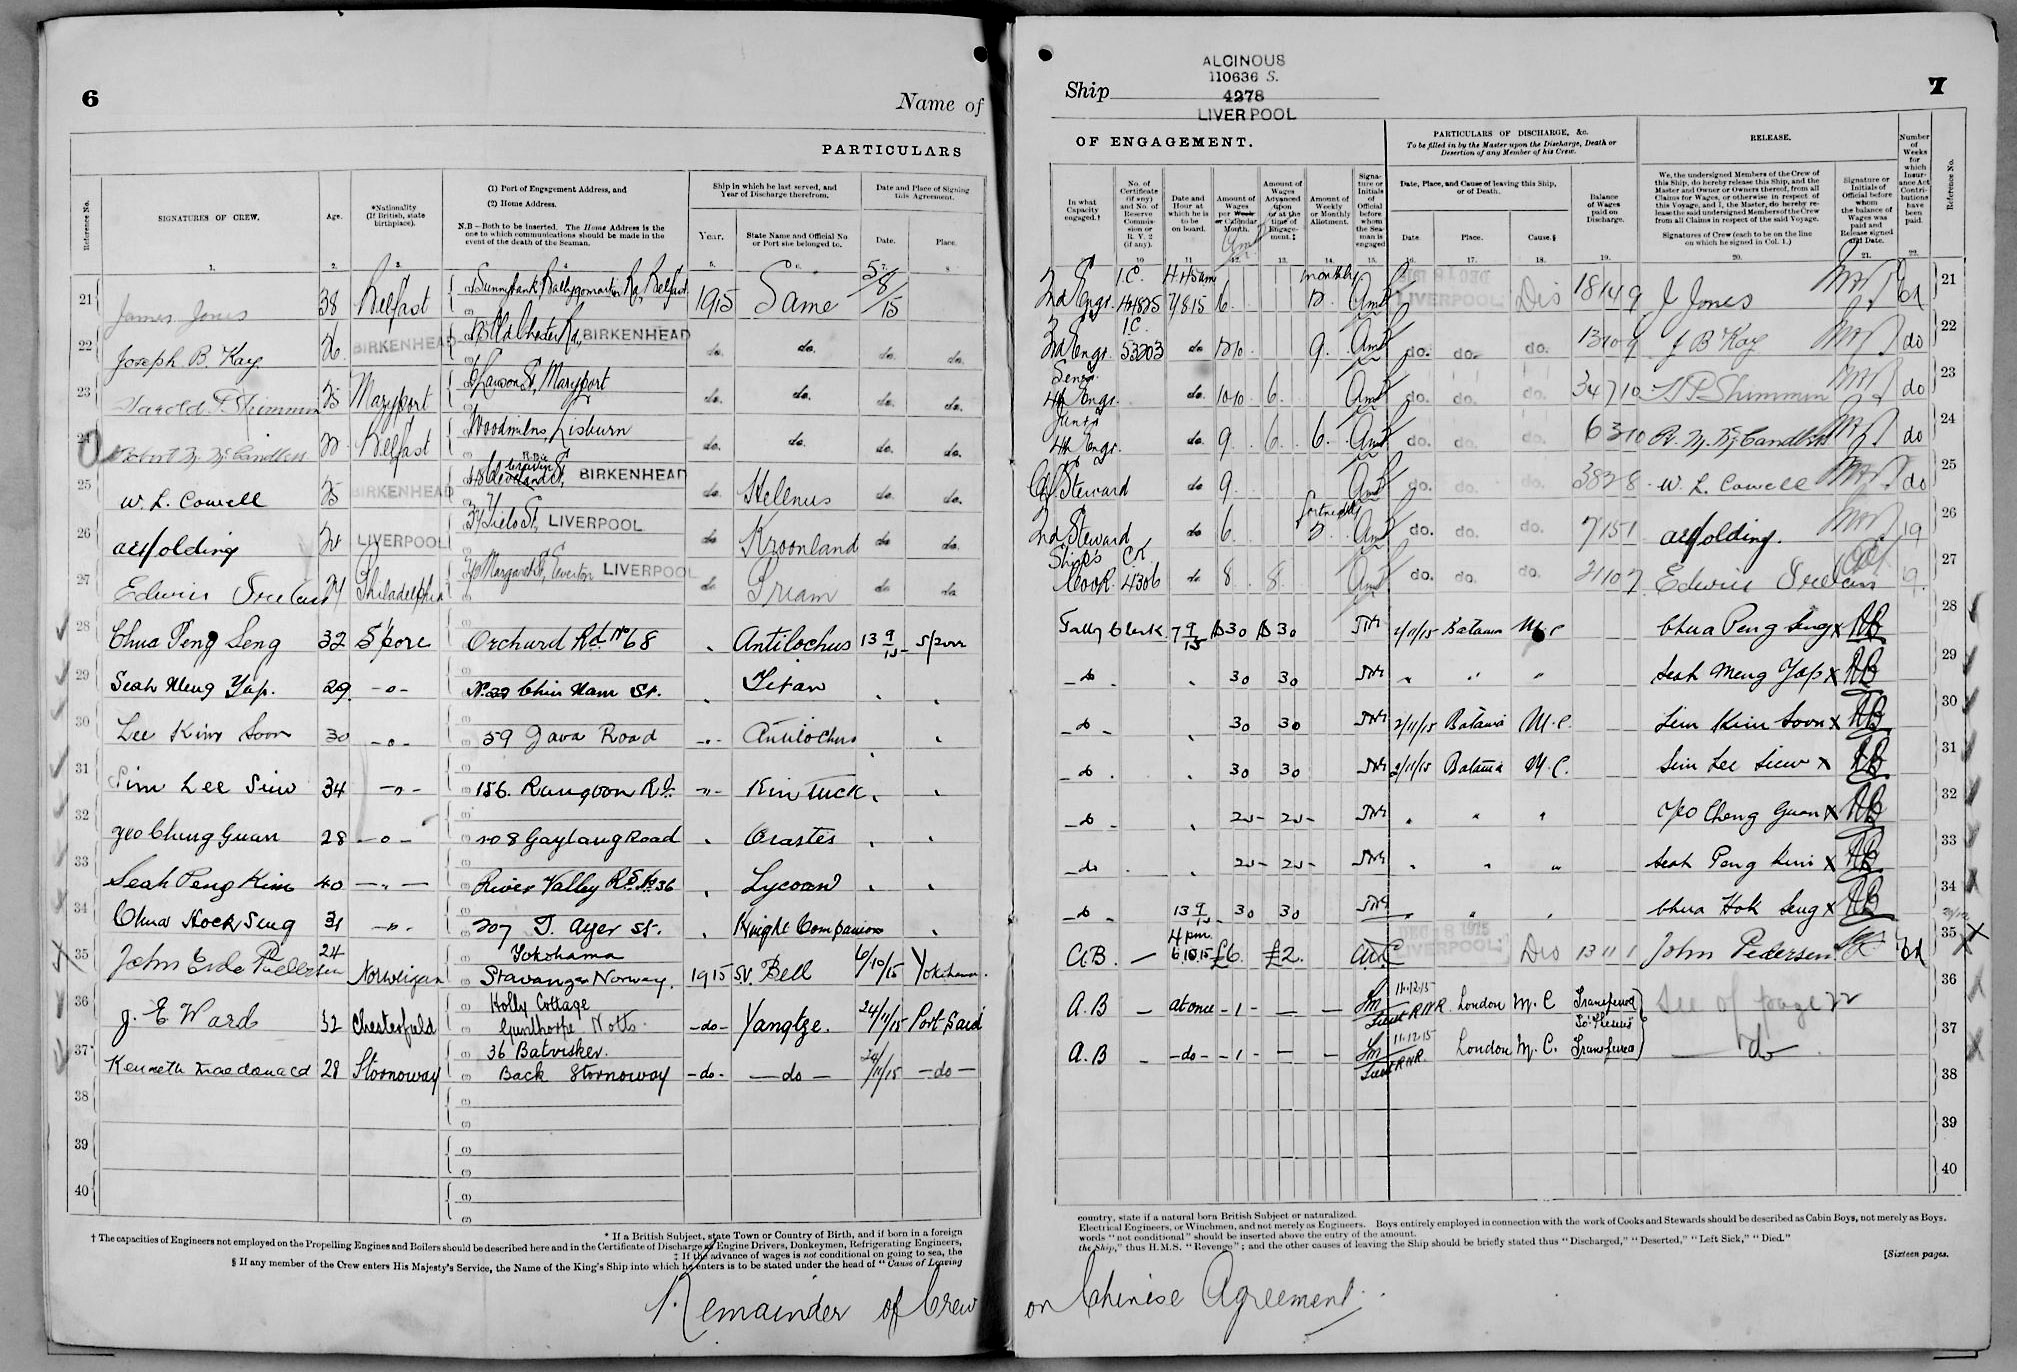 6
Name of
PARTICULARS
Reference No.
SIGNATURES OF CREW.
Age.
*Nationality (If British, state birthplace).
(1) Port of Engagement Address, and
(2) Home Address.
N.B.—Both to be inserted. The Home Address is the one to which communications should be made in the event of the death of the Seaman.
Ship in which he last served, and Year of Discharge therefrom.
Year.
State Name and Official No or Port she belonged to.
Date and Place of Signing this Agreement.
Date.
Place.
21 James Jones 38 Belfast Sunnybank Ballygomartin Rd, Belfast 1915 Same 5/8/15
22 Joseph B. Kay BIRKENHEAD Old Chester Rd, BIRKENHEAD do. do. do. do.
23 Harold P. Shimmin Maryport Lawson St, Maryport do. do. do. do.
24 Robert M. McCandless Belfast Woodmilns, Lisburn do. do. do. do.
25 W. L. Cowell BIRKENHEAD BIRKENHEAD do. Helenus do. do.
26 LIVERPOOL LIVERPOOL do Kroonland do do.
27 Edwin Philadelphia Margaret St, Everton LIVERPOOL do. Priam do do
28 Chua Peng Seng 32 S'pore Orchard Rd. No 68 Antilochus 13 9/15 S'pore
29 Seah Meng Yap. 29 -o- No 29 Chin Nam St. Titan
30 Lee Kim Soon 30 -o- 59 Java Road -"- Antilochus
31 Sim Lee Siew 34 -"- 156. Rangoon Rd. -"- Kintuck
32 Yeo Cheng Guan 28 -o- 208 Gaylang Road Orestes
33 Seah Peng Kim 40 -"- River Valley Rd. No 36 Lycaon
34 Chua Hock Seng 31 -"- 207 T. Ayer St. Knight Companion
35 John 24 Norweigan Yokohama
Stavanger Norway. 1915 S.V. Bell 6/10/15 Yokohama.
36 J. E Ward 32 Chesterfield Holly Cottage
Gunthorpe Notts. -do- Yangtze. 24/11/15 Port Said
37 Kenneth Macdonald 28 Stornoway 36 Batvisker.
Back Stornoway -do- -do- 24/11/15 -do-
38
39
40
* If a British Subject, state Town or Country of Birth, and if born in a foreign
† The capacities of Engineers not employed on the Propelling Engines and Boilers should be described here and in the Certificate of Discharge as Engine Drivers, Donkeymen, Refrigerating Engineers,
‡ If the advance of wages is not conditional on going to sea, the
§ If any member of the Crew enters His Majesty's Service, the Name of the King's Ship into which he enters is to be stated under the head of "Cause of Leaving
Remainder of Crew
Ship
ALCINOUS
110636 S.
4278
LIVERPOOL
7
OF ENGAGEMENT.
PARTICULARS OF DISCHARGE, &c.
To be filled in by the Master upon the Discharge, Death or Desertion of any Member of his Crew.
RELEASE.
Number of Weeks for which Insurance Act Contributions have been paid.
Reference No.
In what Capacity engaged.†
No. of Certificate (if any) and No. of Reserve Commission or R. V. 2 (if any).
Date and Hour at which he is to be on board.
Amount of Wages per Week or Calendar Month.
Amount of Wages Advanced upon or at the time of Engagement.‡
Amount of Weekly or Monthly Allotment.
Signature or Initials of Official before whom the Seaman is engaged
Date, Place, and Cause of leaving this Ship, or of Death.
Date.
Place.
Cause.§
Balance of Wages paid on Discharge.
We, the undersigned Members of the Crew of this Ship, do hereby release this Ship, and the Master and Owner or Owners thereof, from all Claims for Wages, or otherwise in respect of this Voyage, and I, the Master, do hereby release the said undersigned Members of the Crew from all Claims in respect of the said Voyage.
Signatures of Crew (each to be on the line on which he signed in Col. 1.)
Signature or Initials of Official before whom the balance of Wages was paid and Release signed and Date.
2nd Engr. 1.C. 44825 4.45am 7 8 15 monthly LIVERPOOL Dis 18 14 9 J Jones 21
3rd Engr. 1.C. 53203 do 9. do. do. do. J B Kay do 22
Senr. 4th Engr. do. 10 10 6. do. do. do. 34 7 10 H P Shimmin do 23
Junr. 4th Engr. do. 9 6. 6. do. do. do. 6 3 10 R. M. McCandless do 24
Steward do 9. do. do. do. 38 2 8 W. L. Cowell do 25
2nd Steward do 6. fortnightly do. do. do. 7 15 1 19 26
Ship's Cook. 4306 do 8 8 do. do. do. 21 10 7 Edwin 9 27
Tally Clerk. 7 9/15 $30 $30 2/11/15 Batavia M.C Chua Peng Seng x 28
-do- 30 30 " " " Seah Meng Yap x 29
-do- 30 30 2/11/15 Batavia M.C. Lim Kim Soon x 30
-do- 30 30 2/11/15 Batavia M.C. Sim Lee Siew x 31
-do- 25- 25- " " " Yeo Cheng Guan x 32
-do- 25- 25- " " " Seah Peng Kim x 33
-do- 13 9/15 30 30 " " " Chua Hok Seng x 34
A.B. — 4 pm. 6.10.15 £6. £2. DEC 18 1915 LIVERPOOL Dis 13 11 1 John Pedersen 35
A.B — at once -1- — — Lieut RNR. 11.12.15 London M.C Transferred To "Theseus" See of page 22 36
A.B — -do- -1- — — Lieut RNR 11.12.15 London M.C. Transferred do 37
38
39
40
country, state if a natural born British Subject or naturalized.
Electrical Engineers, or Winchmen, and not merely as Engineers. Boys entirely employed in connection with the work of Cooks and Stewards should be described as Cabin Boys, not merely as Boys.
words "not conditional" should be inserted above the entry of the amount.
the Ship," thus H.M.S. "Revenge"; and the other causes of leaving the Ship should be briefly stated thus "Discharged," "Deserted," "Left Sick," "Died."
[Sixteen pages.
on Chinese Agreement.